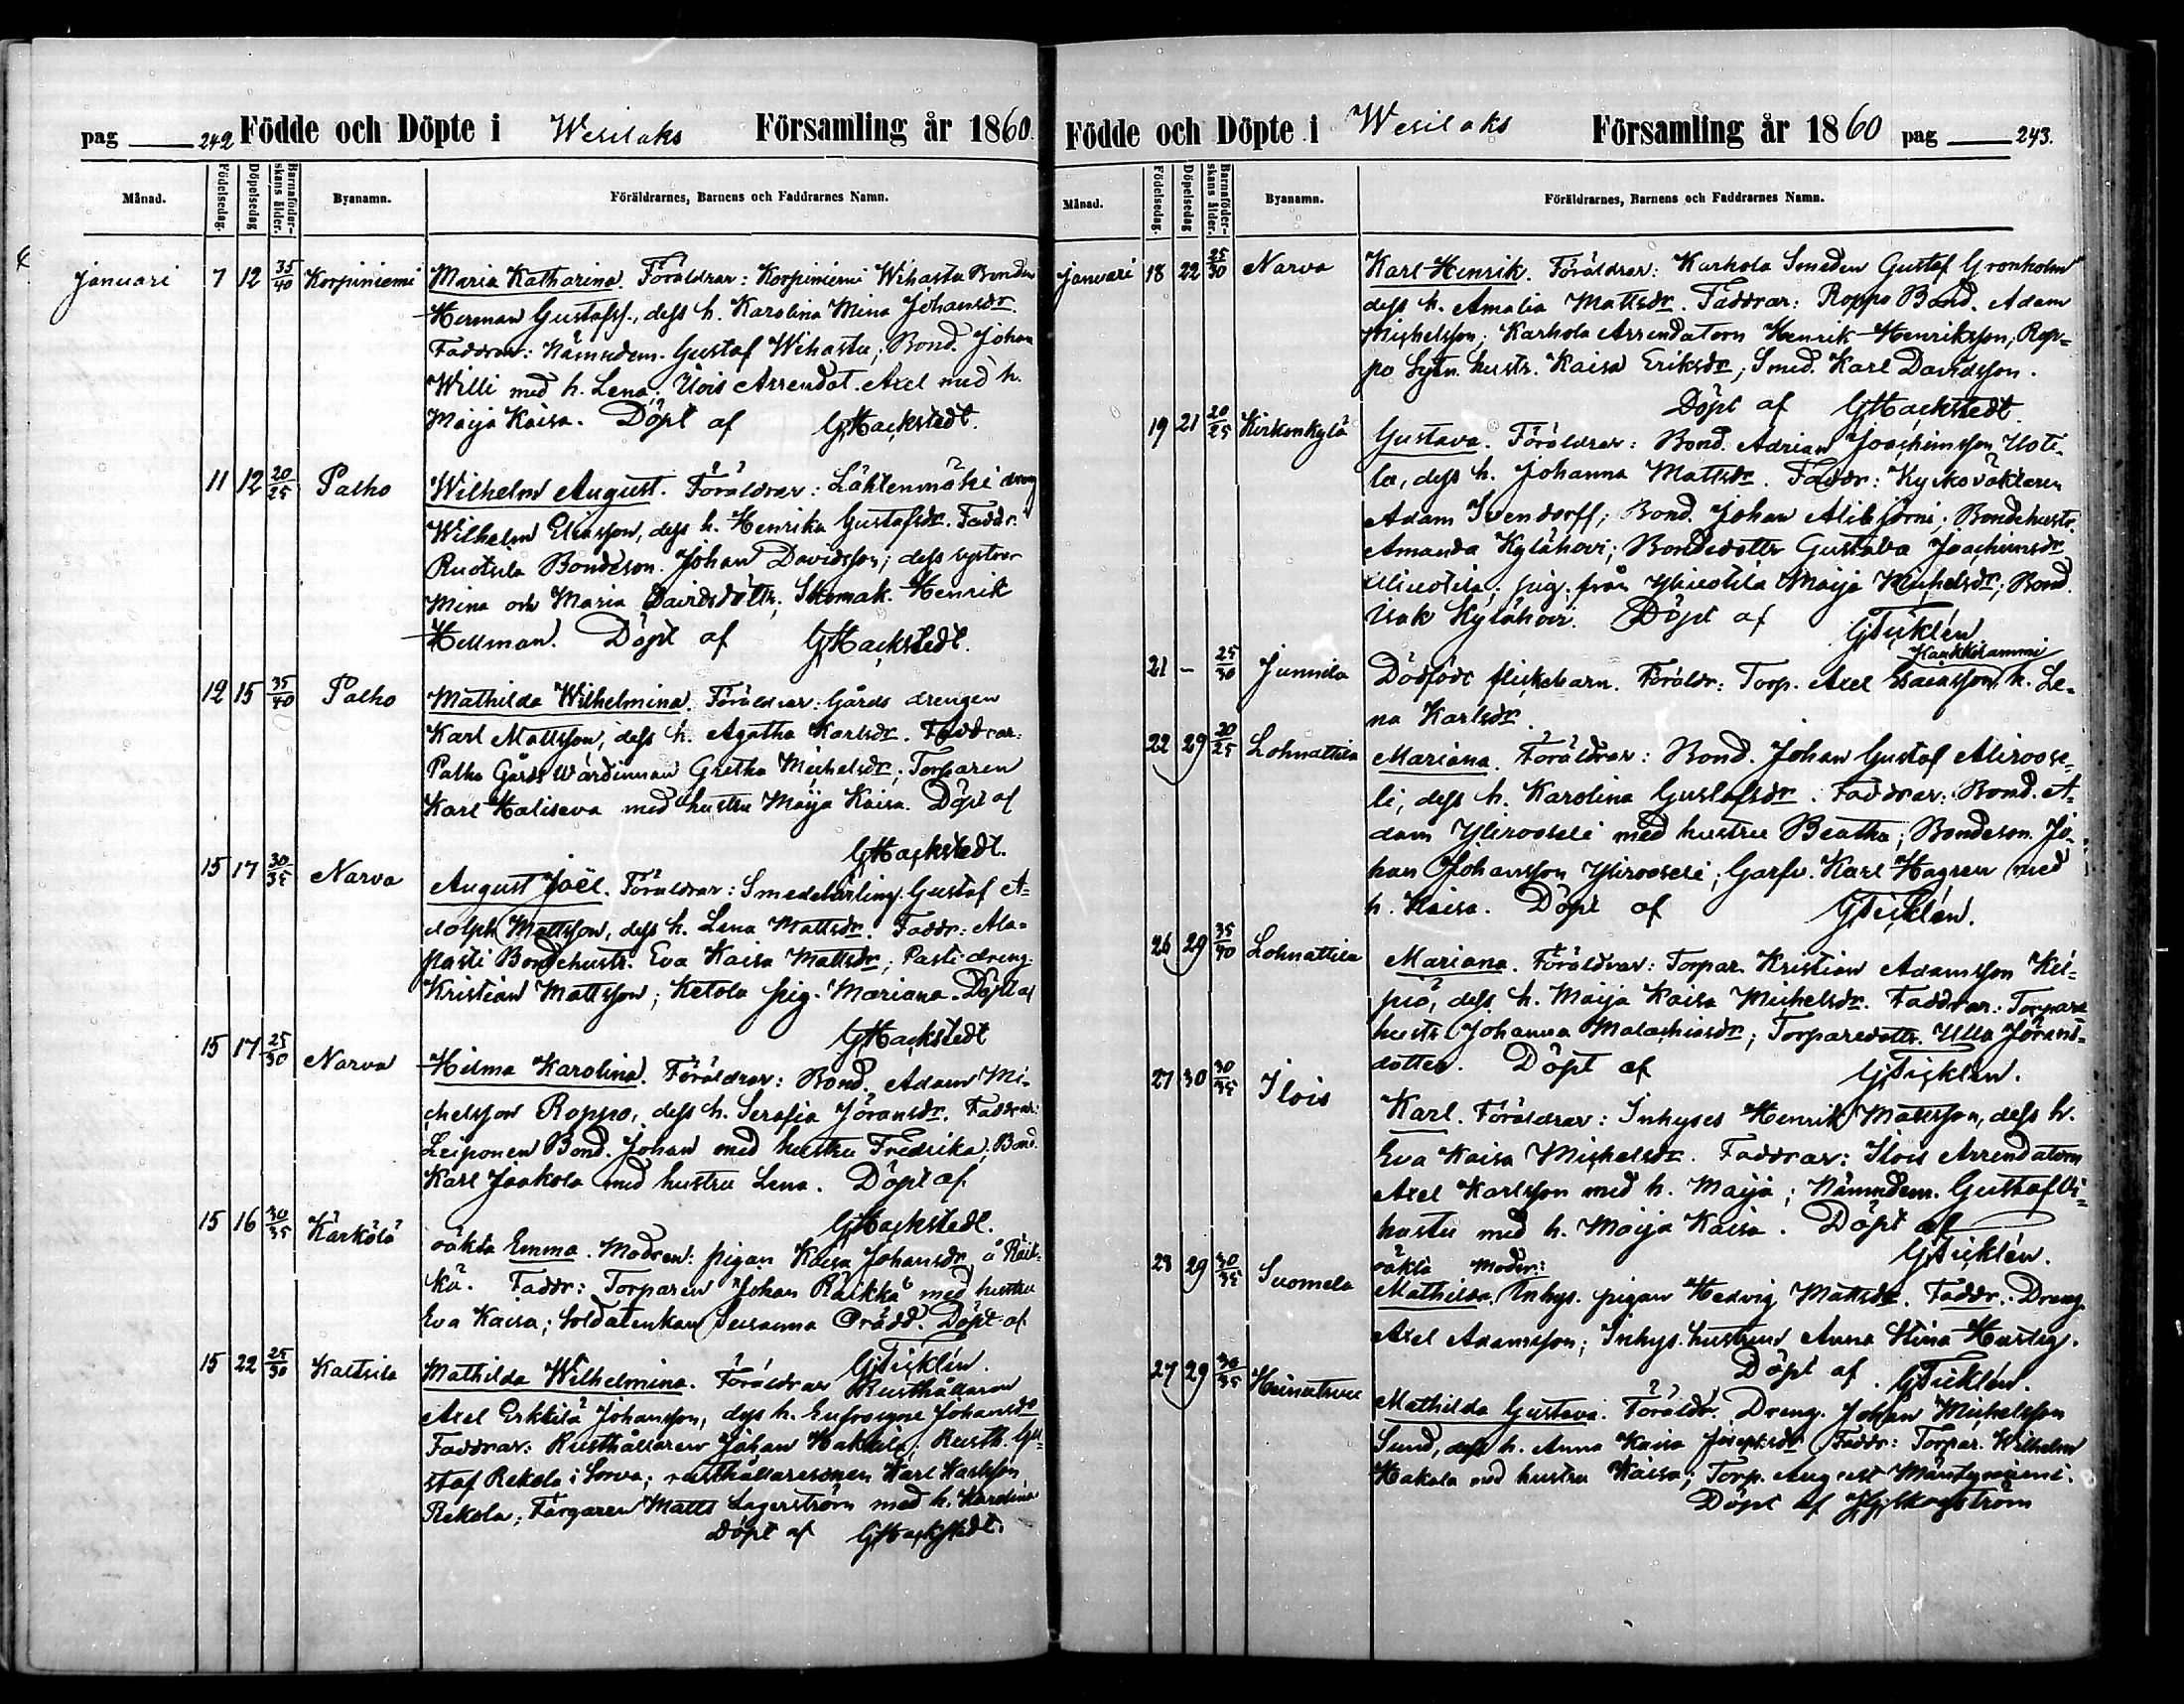 pag 242 Födde och Döpte i Wesilaks Församling år 1860.
Månad. Födelsedag. Döpelsedag Barnaföderskans ålder. Byanamn. Föräldrarnes, Barnens och Faddrarnes Namn.
Januari 7 12 35/40 Korpiniemi Maria Katharina. Föräldrar: Korpiniemi Wihastu Bonden
Herman Gustafss., dess h. Karolina Mina Johansdr.
Faddrar: Nämndem. Gustaf Wihastu; Bond. Johan
Willi med h. Lena; Ilois Arrendat. Axel med h.
Maija Kaisa. Döpt af GHackstedt.
11 12 20/25 Palho Wilhelm August. Föräldrar: Lähtenmäki dreng
Wilhelm Eliasson, dess h. Henrika Gustafsdr. Faddr.
Ruotsila Bondeson. Johan Davidsson; dess systrar
Mina och Maria Davidsdöttr; Skomak. Henrik
Hellman. Döpt af GHackstedt.
12 15 35/40 Palho Mathilda Wilhelmina. Föräldrar: Gårds drengen
Karl Mattsson, dess h. Agatha Karlsdr. Faddrar:
Palho Gårds Wärdinnan Gretha Michelsdr; Torparen
Karl Haliseva med hustru Maija Kaisa. Döpt af
GHackstedt.
15 17 30/35 Narva August Joël. Föräldrar: Smedelärling. Gustaf A-
dolph Mattsson, dess h. Lena Mattsdr. Faddr: Ala-
pasti Bondehustr. Eva Kaisa Mattsdr; Pasti dreng.
Kristian Mattsson; Ketola pig. Mariana. Döpt af
GHackstedt
15 17 25/30 Narva Hilma Karolina. Föräldrar: Bond. Adam Mi-
chelsson Roppo, dess h. Serafia Jöransdr. Faddrar:
Leiponen Bond. Johan med hustru Fredrika; Bond.
Karl Jaakola med hustru Lena. Döpt af
GHackstedt.
15 16 30/35 Kärkölä oäkta Emma. Modren: pigan Kaisa Johansdr å Räik-
kä. Faddr: Torparen Johan Räikkä med hustru
Eva Kaisa; Soldatenkan Susanna Grådd. Döpt af
GTicklén.
15 22 25/30 Kaltsila Mathilda Wilhelmina. Föräldrar Rusthållaren
Axel Erkkilä Johansson, dess h. Eufrosyne Johansdr
Faddrar: Rusthållaren Johan Hakkila; Rusth. Gu-
staf Rekola i Sorva; rusthållaresonen Karl Karlsson
Rekola; Färgaren Matts Lagerström med h. Karolina
Döpt af GHackstedt.
Födde och Döpte i Wesilaks Församling år 1860 pag 243.
Månad. Födelsedag. Döpelsedag Barnaföderskans ålder. Byanamn. Föräldrarnes, Barnens och Faddrarnes Namn.
Januari 18 22 25/30 Narva Karl Henrik. Föräldrar: Karhola Smeden Gustaf Grönholm
dess h. Amalia Mattsdr. Faddrar: Roppo Bond. Adam
Michelsson; Karhola Arrendatorn Henrik Henriksson; Rop-
po Sytn. hustr. Kaisa Eriksdr; Smed. Karl Davidsson.
Döpt af GHackstedt.
19 21 20/25 Kirkonkylä Gustava. Föräldrar: Bond. Adrian Joachimsson Uoti-
la, dess h. Johanna Mattsdr. Faddr: Kyrkoväktaren
Adam Svendorff; Bond. Johan Alibjörni; Bondehustr.
Amanda Kylähovi; Bondedottr Gustava Joachimsdr
Aliuotila; pig. från Yliuotila Maija Michelsdr; Bond.
Isak Kylähovi. Döpt af GTicklén
21 – 25/30 Junnila Dödfödt flickebarn. Föräldr: Torp. Axel Isaksson Kaukkolammi h. Le-
na Karlsdr.
22 29 20/25 Lohnattila Mariana. Föräldrar: Bond. Johan Gustaf Aliroose-
li, dess h. Karolina Gustafsdr. Faddrar: Bond. A-
dam Yliroseli med hustru Beatha; Bondeson. Jo-
han Johansson Ylirooseli; Garfv. Karl Hagren med
h. Kaisa. Döpt af GTicklén.
26 29 35/40 Lohnattila Mariana. Föräldrar: Torpar. Kristian Adamsson Kil-
piö, dess h. Maija Kaisa Michelsdr. Faddrar: Torpare
hustr. Johanna Malachiasdr; Torparedottr. Ulla Jörans-
dotter. Döpt af GTicklén.
27 30 30/35 Ilois Karl. Föräldrar: Inhyses Henrik Mattsson, dess h.
Eva Kaisa Michelsdr. Faddrar: Ilois Arrendatorn
Axel Karlsson med h. Maija; Nämndem. Gustaf Vi-
hastu med h. Maija Kaisa. Döpt af
GTicklén.
23 29 30/35 Suomela oäkta Moder:
Mathilda. Inhys. pigan Hedvig Mattsdr. Faddr. Dreng.
Axel Adamsson; Inhys. hustrun Anna Stina Hurtig.
Döpt af GTicklén.
27 29 30/35 Heinätsuu Mathilda Gustava. Föräldr. Dreng. Johan Michelsson
Sund, dess h. Anna Kaisa Josephsdr Faddr: Torpar. Wilhelm
Hakala med hustru Kaisa; Torp. August Mäntyniemi.
Döpt af JGSkogström